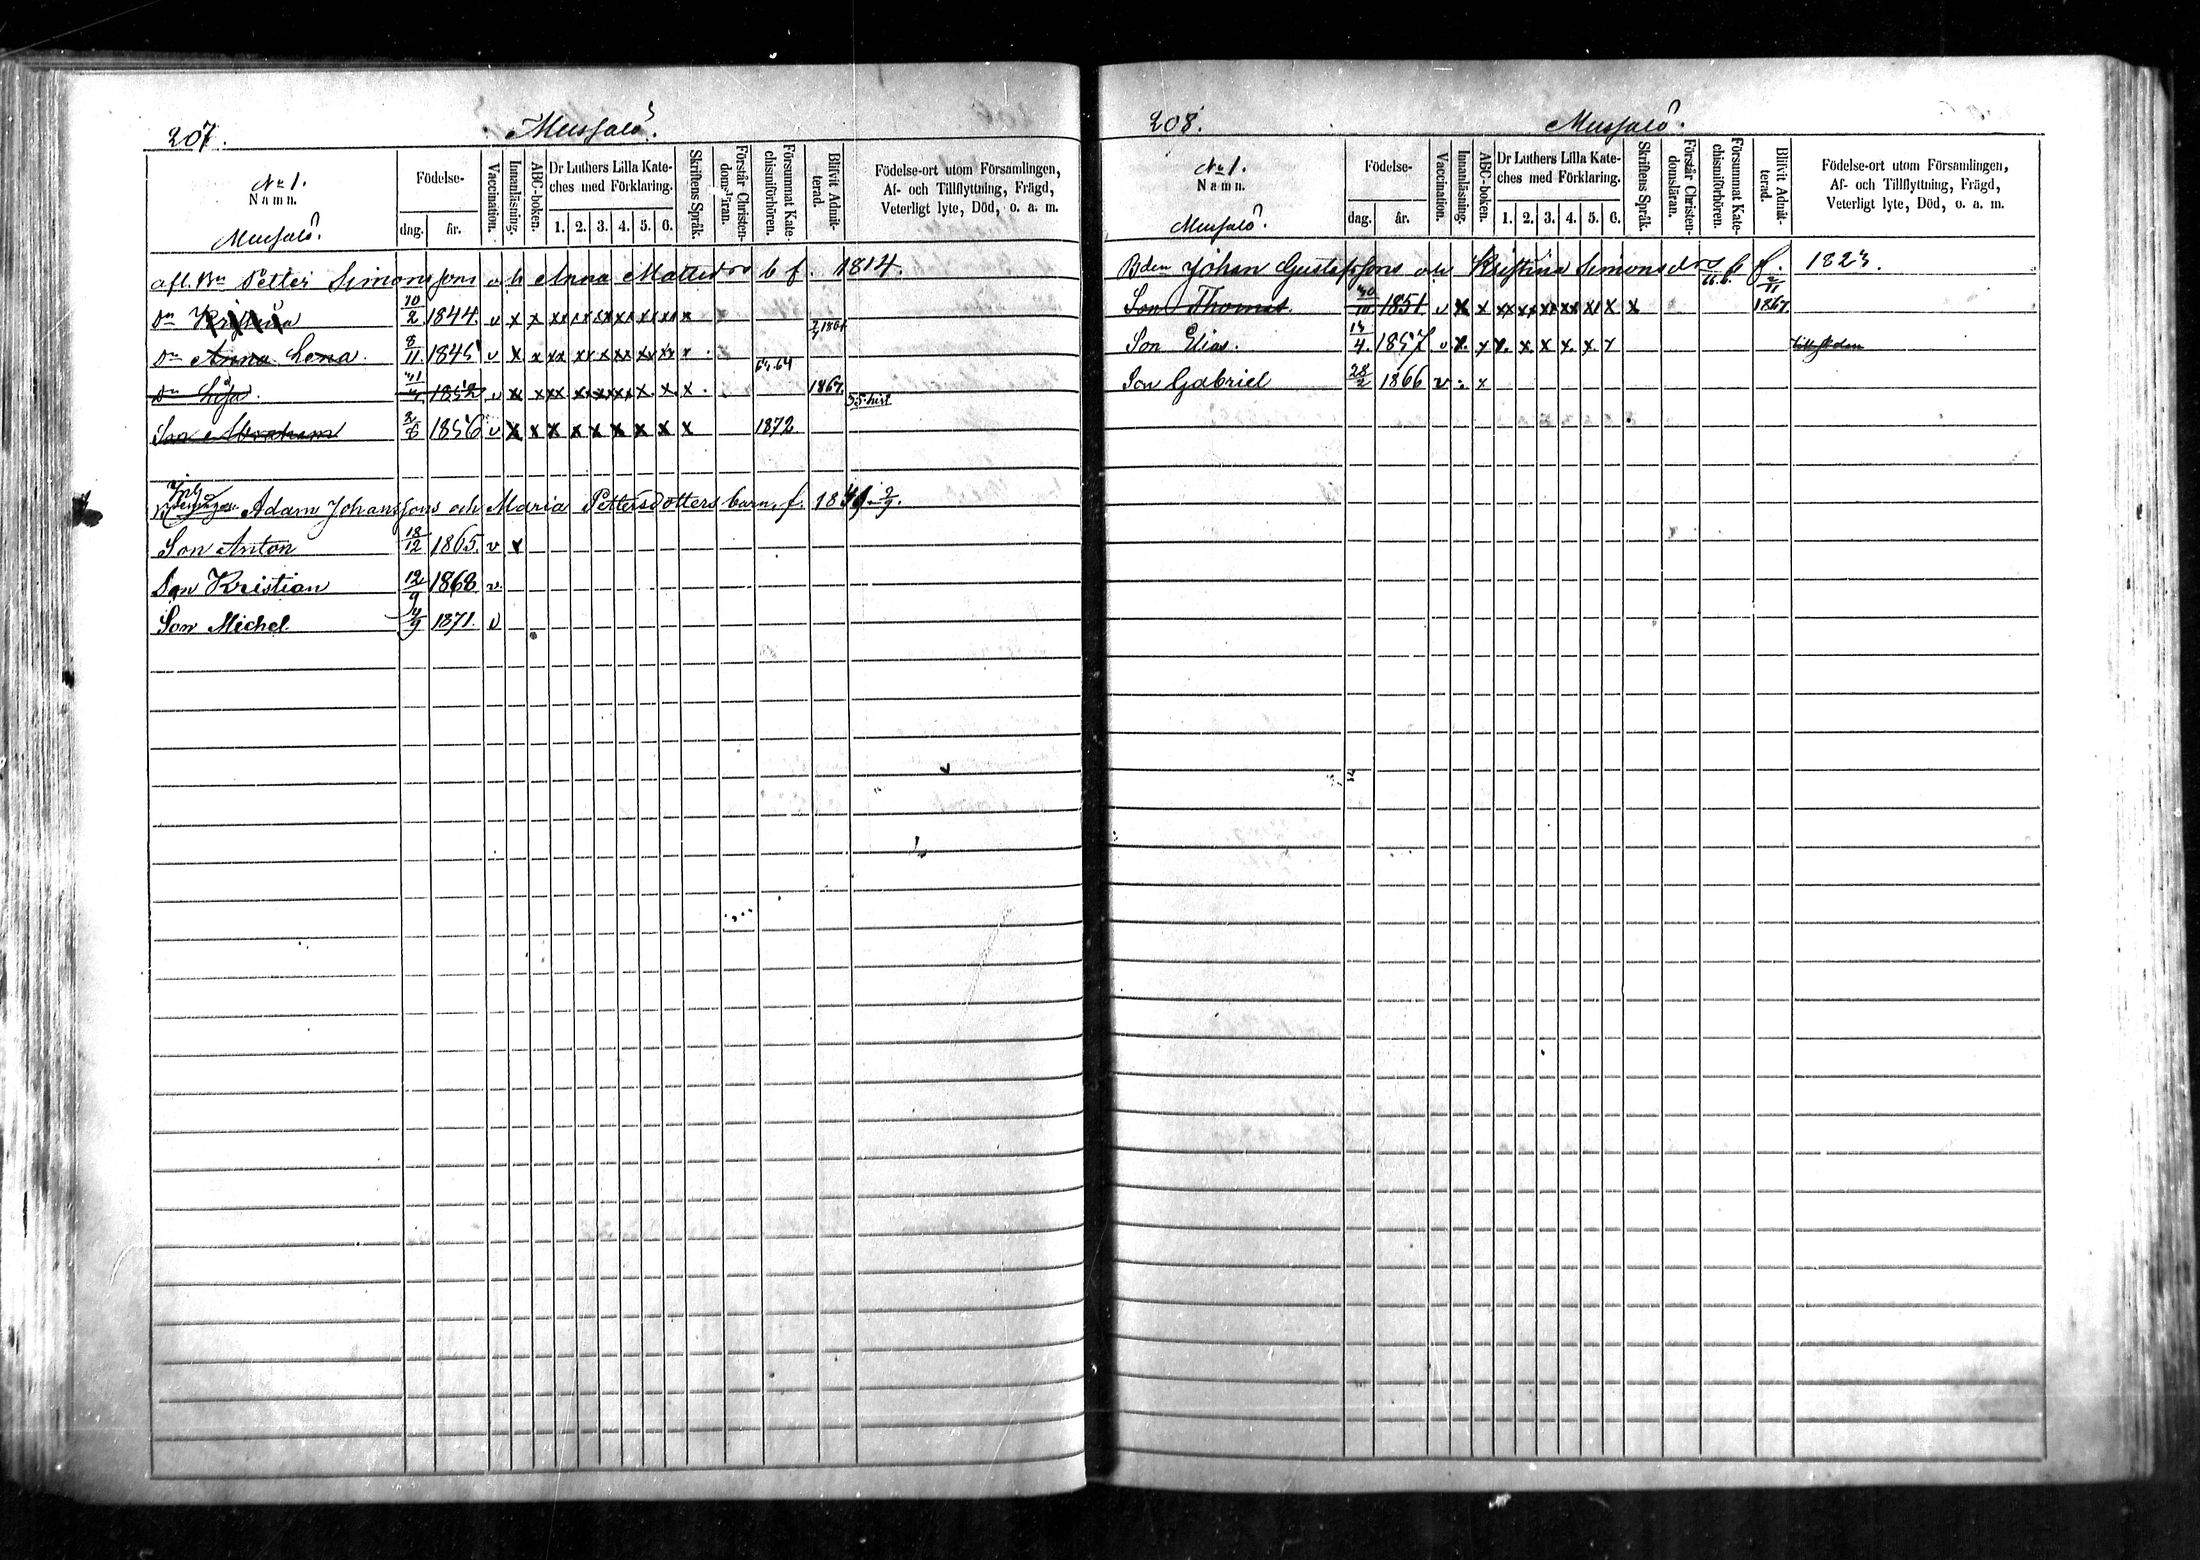 207.
Mussalö.
No 1.
Namn.
Mussalö.
Födelse-
dag. år.
Vaccination.
Innanläsning.
ABC-boken.
Dr Luthers Lilla Kate-
ches med Förklaring.
1. 2. 3. 4. 5. 6.
Skriftens Språk.
Förstår Christen-
domsläran.
Försummat Kate-
chismiförhören.
Blifvit Admit-
terad.
Födelse-ort utom Församlingen,
Af- och Tillflyttning, Frägd,
Veterligt lyte, Död, o. a. m.
afl. Bn Petter Simonssons o. h Anna Mattsdrs b f. 1814.
Dn Kristina 10/2 1844. v x x xx xx xx xx xx xx x
Dn Anna Lena. 8/11 1845 v x x xx xx x xx xx xx x 63.64
Dn Lisa. 1852 v x x xx xx xx xx x. x. x. 1867.
Son Abraham 2/6 1856 v x x x x x x x x x 1872
Adam Johanssons och Maria Pettersdotters barn, f. 1841 2/9.
Son Anton 18/12 1865. v
Son Kristian 12/9 1868 v.
Son Michel 4/9 1871. v
208.
Mussalö.
No 1.
Namn.
Mussalö.
Födelse-
dag. år.
Vaccination.
Innanläsning.
ABC-boken.
Dr Luthers Lilla Kate-
ches med Förklaring.
1. 2. 3. 4. 5. 6.
Skriftens Språk.
Förstår Christen-
domsläran.
Försummat Kate-
chismiförhören.
Blifvit Admit-
terad.
Födelse-ort utom Församlingen,
Af- och Tillflyttning, Frägd,
Veterligt lyte, Död, o. a. m.
Bden Johan Gustafssons o h Kristina Simonsdrs b f. 2/11 1823.
Son Thomas. 30/10 1851 v x x xx xx xx xx x x x 1867.
Son Elias. 13/4. 1857 v x. x x. x. x x. x x
Son Gabriel 28/2 1866 v x